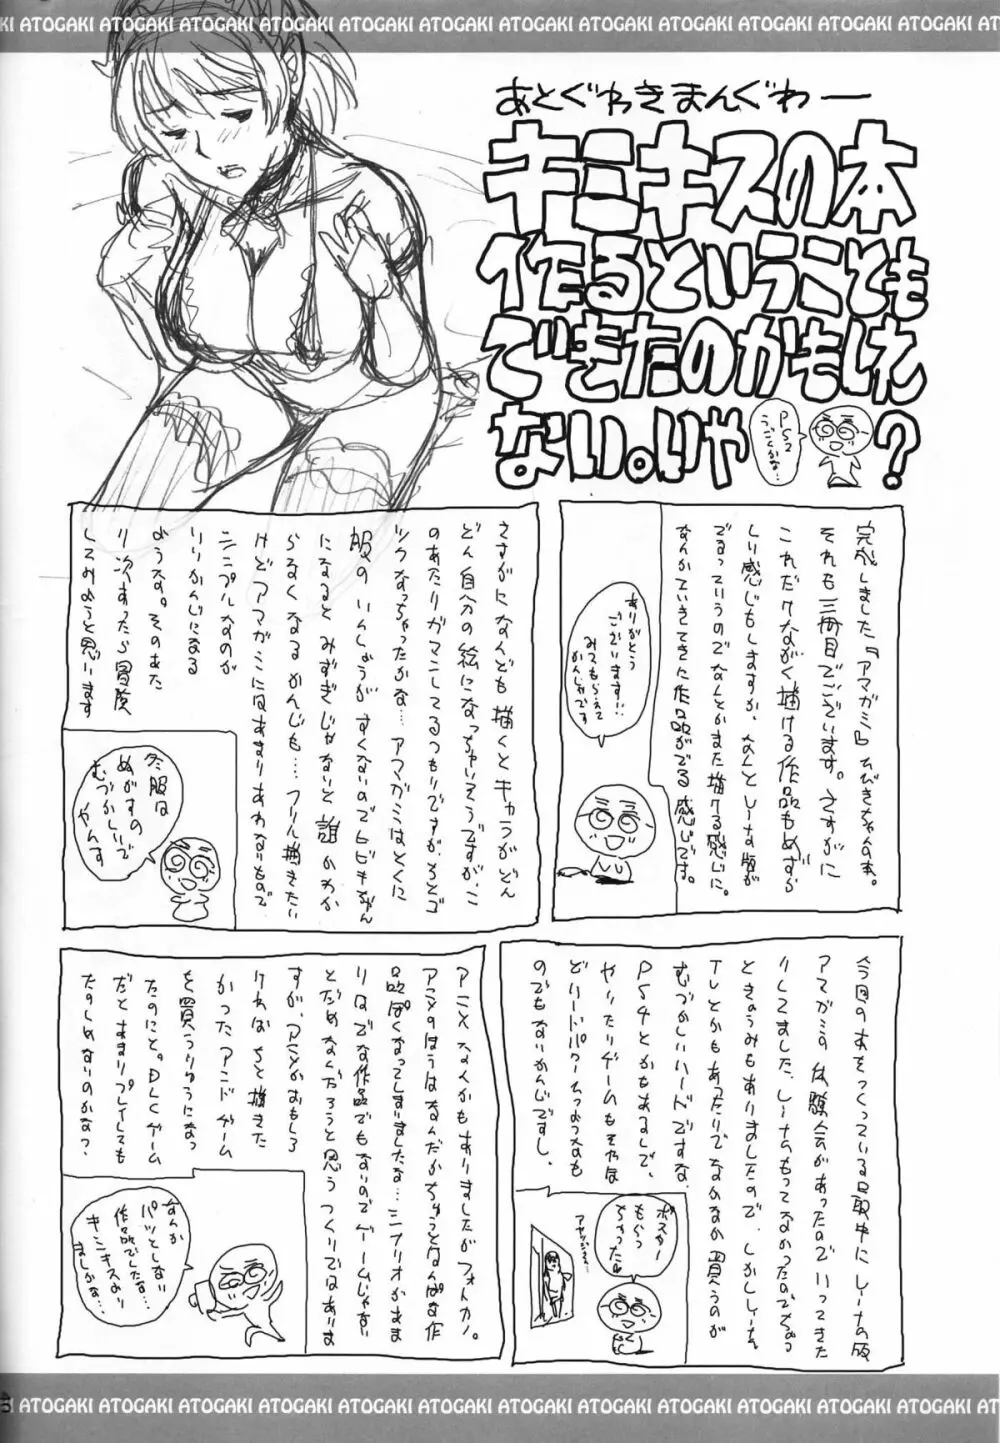 ATOGAKI ATOGAKI ATOGAKI ATOGAKI ATOGAKI ATOGAKI ATOGAKI ATOGAKI ATOGAKI ATOGAKI
あとぐわきまんぐわー
キミキスの本
作るということも
できたのかもしれ
ない。いや
PS2
うごくかな…
?
完成しました『アマガミ』ひびきちゃん本。
それも三冊目でございます。さすがに
これだけながく描ける作品もめずら
しい感じもしますが、なんとしーな版が
でるっていうのでなんとかまた描ける感じに。
なんかでいきてきた作品がでる感じです。
ありがとう
ございます!!
みてもらえて
かんしゃです
さすがになんども描くとキャラがどん
どん自分の絵になっちゃいそうですが、こ
のあたりガマンしてるつもりですが、ろとゴ
ツクなっちゃったかな…アマガミはとくに
服のいしょうがすくないのでヒビキちゃん
になるとみずぎじゃないと誰かわか
らなくなるかんじも…フリル描きたい
けどアマガミにはあまりあわないもので
シンプルなのが
いいかんじになる
ような。そのあた
り次あったら冒険
してみようと思います
冬服は
ぬがすの
むづかしいで
やんす
今回の本をつくっている最中にしーなの版
アマガミの体験会があったのでいってきた
りしてました、しーなもってなかったのでちょっ
ときょうみもありましたので、しかししーなも
TVとかもあったりでなかなか買うのが
むづかしいハードですな。
PS4とかもあるしで、
やったりゲームもそれほ
どハードパワーつかうもの
のでもないかんじですし、
ポスター
もらっ
ちゃったね
アニメなんかもありましたがフォトカノ。
アニメのほうはなんだかちょっとなんぱな作
品ぽくなってしまいましたな…シナリオがあま
りはでな作品でもないのでゲームじゃない
とだめなんだろうと思うつくりではありま
すが、アニメがおもしろ
ければちと描きた
かったアンドゲーム
を買うりゆうになっ
たのにと。DLCゲーム
だとあまりプレイしても
たのしめないのかな?
なんか
パッとしない
作品でしたな…
キミキスより
ましかな…
ATOGAKI ATOGAKI ATOGAKI ATOGAKI ATOGAKI ATOGAKI ATOGAKI ATOGAKI ATOGAKI ATOGAKI